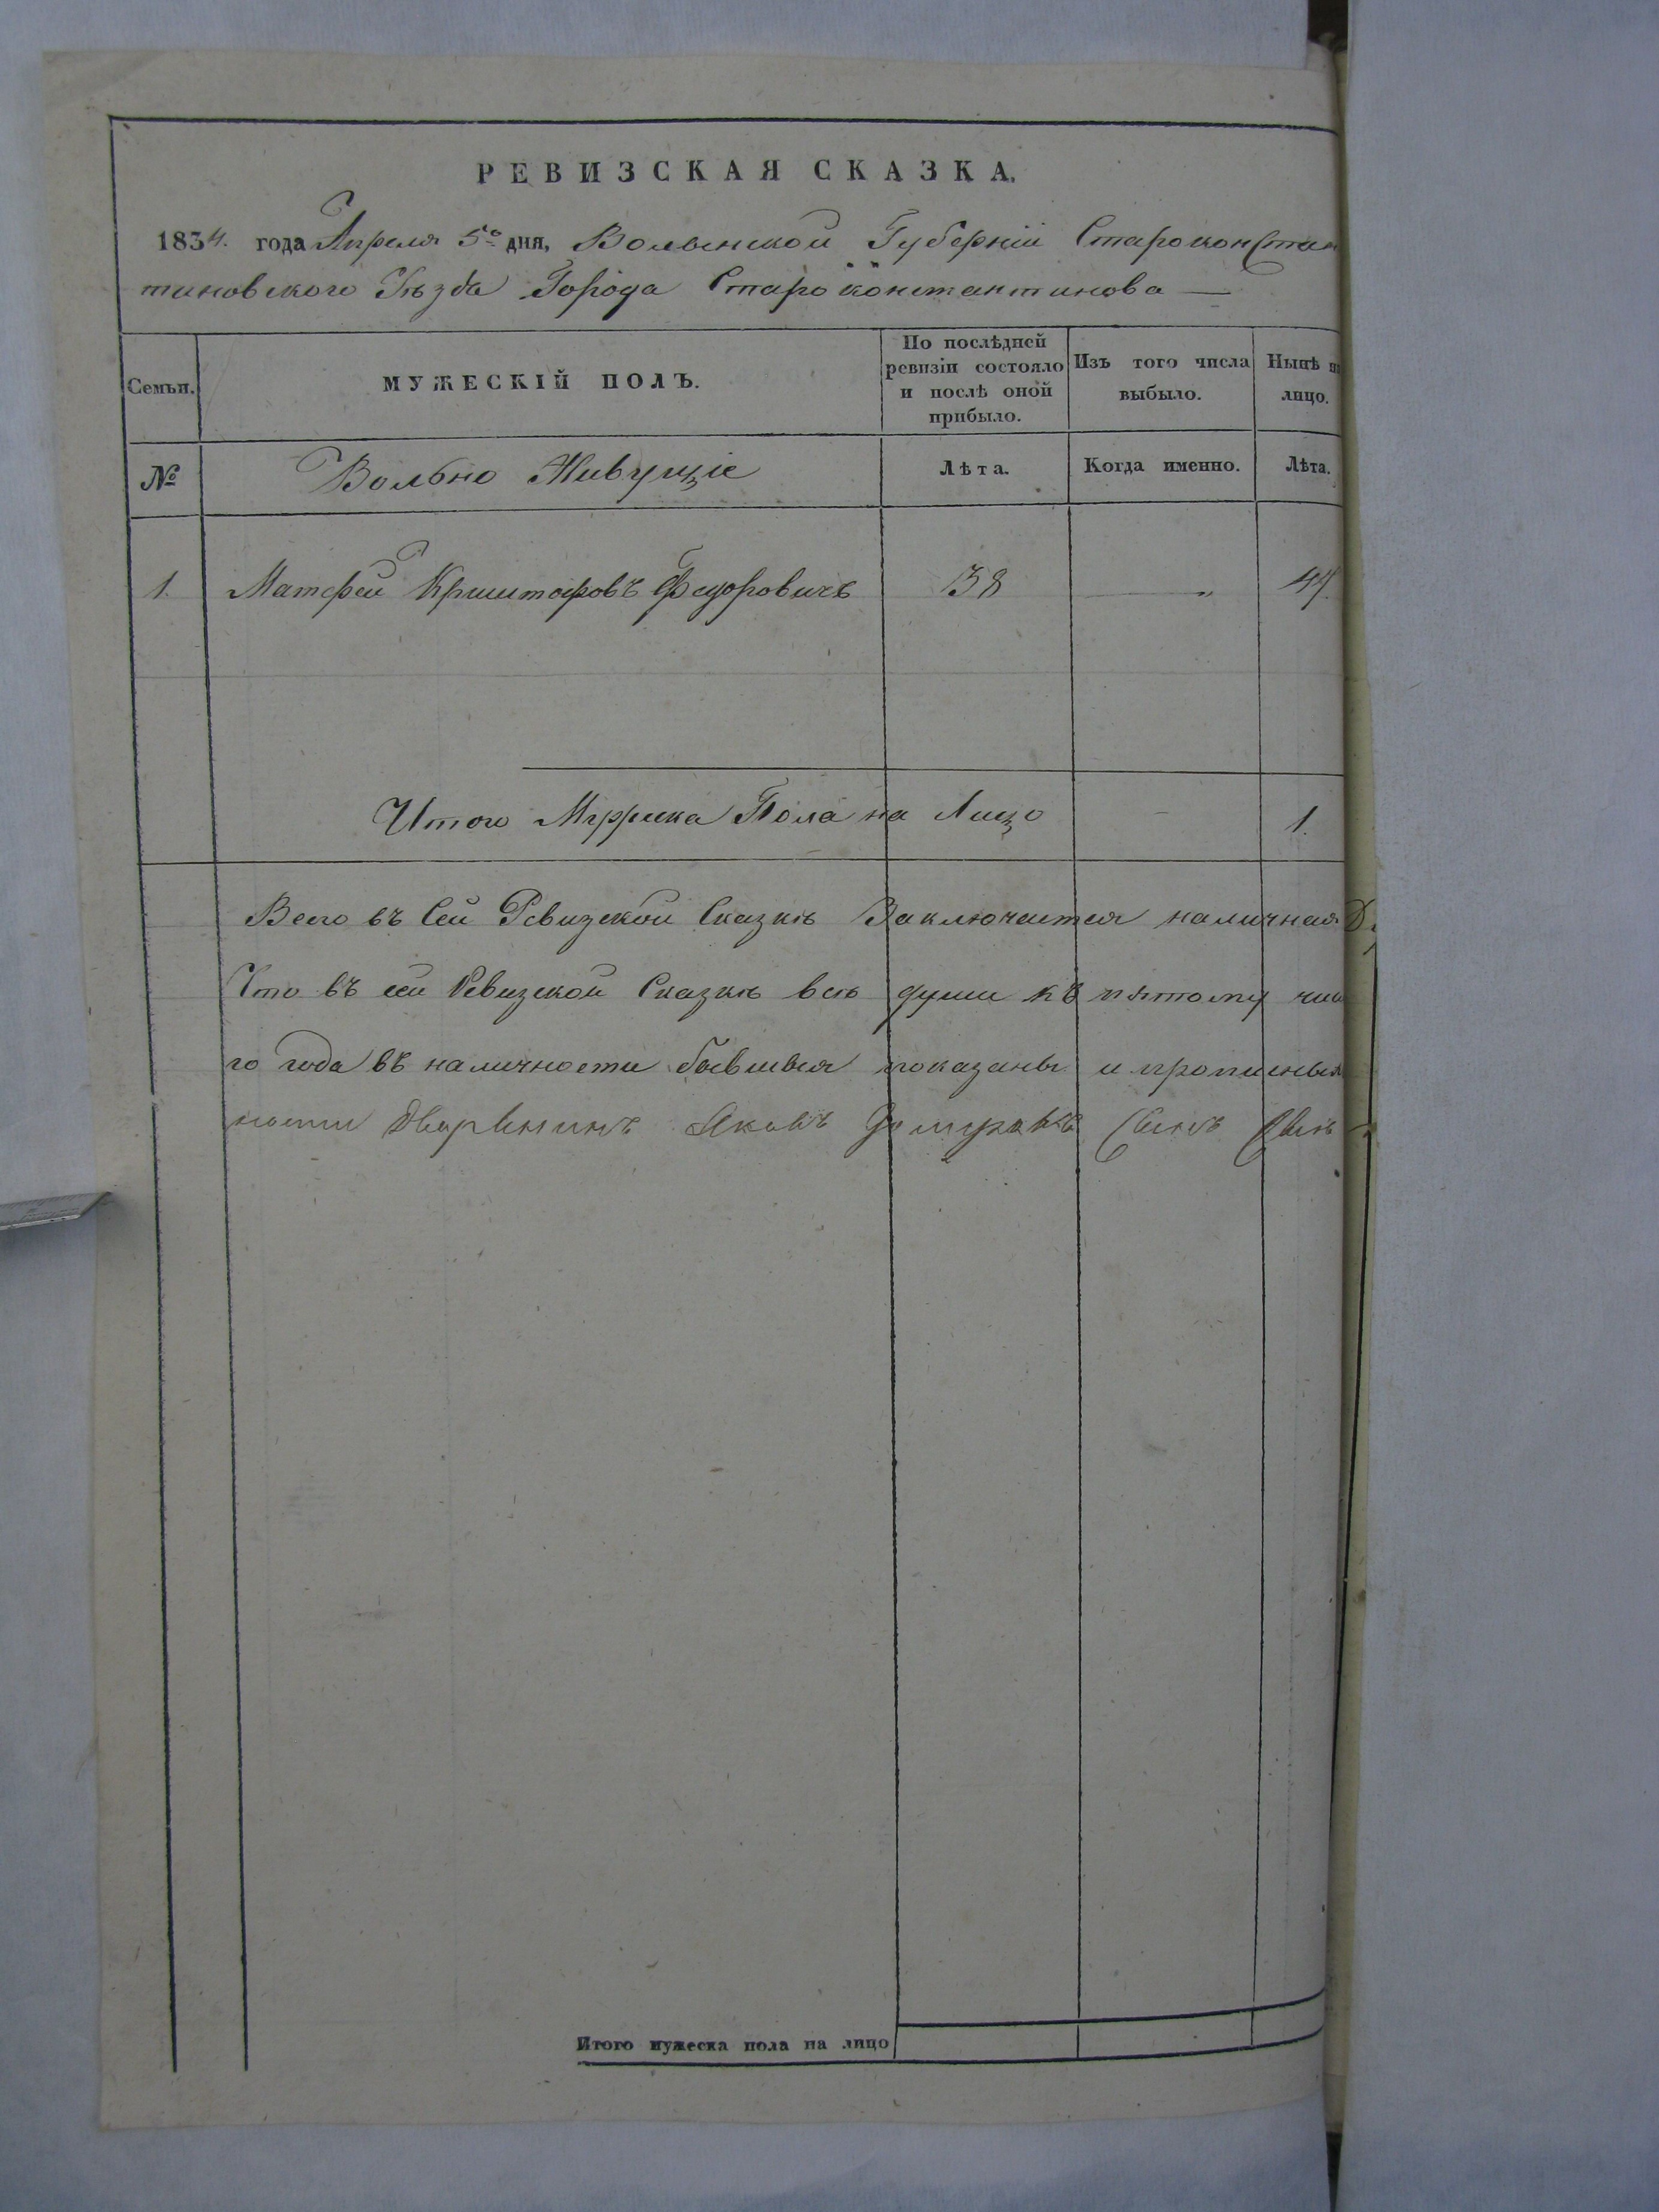 РЕВИЗСКАЯ СКАЗКА.
1834. года Апреля 5го дня, Волынской Губерніи Староконстан
тиновского Уѣзда Города Староконстантинова —
Семьи.
МУЖЕСКІЙ ПОЛЪ.
По послѣдней ревизіи состояло и послѣ оной прибыло.
Изъ того числа выбыло.
Нынѣ на лицо.
№
Вольно Живущіе
Лѣта.
Когда именно.
Лѣта.
1. Матфей Криштофовъ Федоровичъ 38 — „ 44
Итого Мужеска Пола на Лицо - 1.
Всего въ Сей Ревизской Сказкѣ Заключается наличная Д.
Что въ сей Ревизской Сказкѣ всѣ души къ пятому чис
го года въ наличности бывшыя показаны и прописныя
ности Дворянинъ Яковъ Сынъ
Итого мужеска пола на лицо